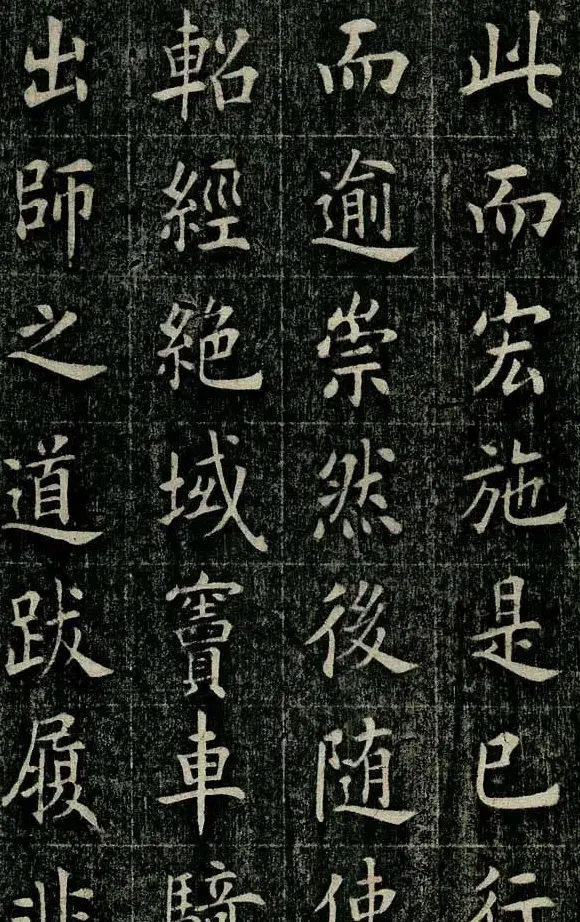 此而宏施是已行
而逾崇然後随使
軺經絕域竇車騎
出師之道跋履非